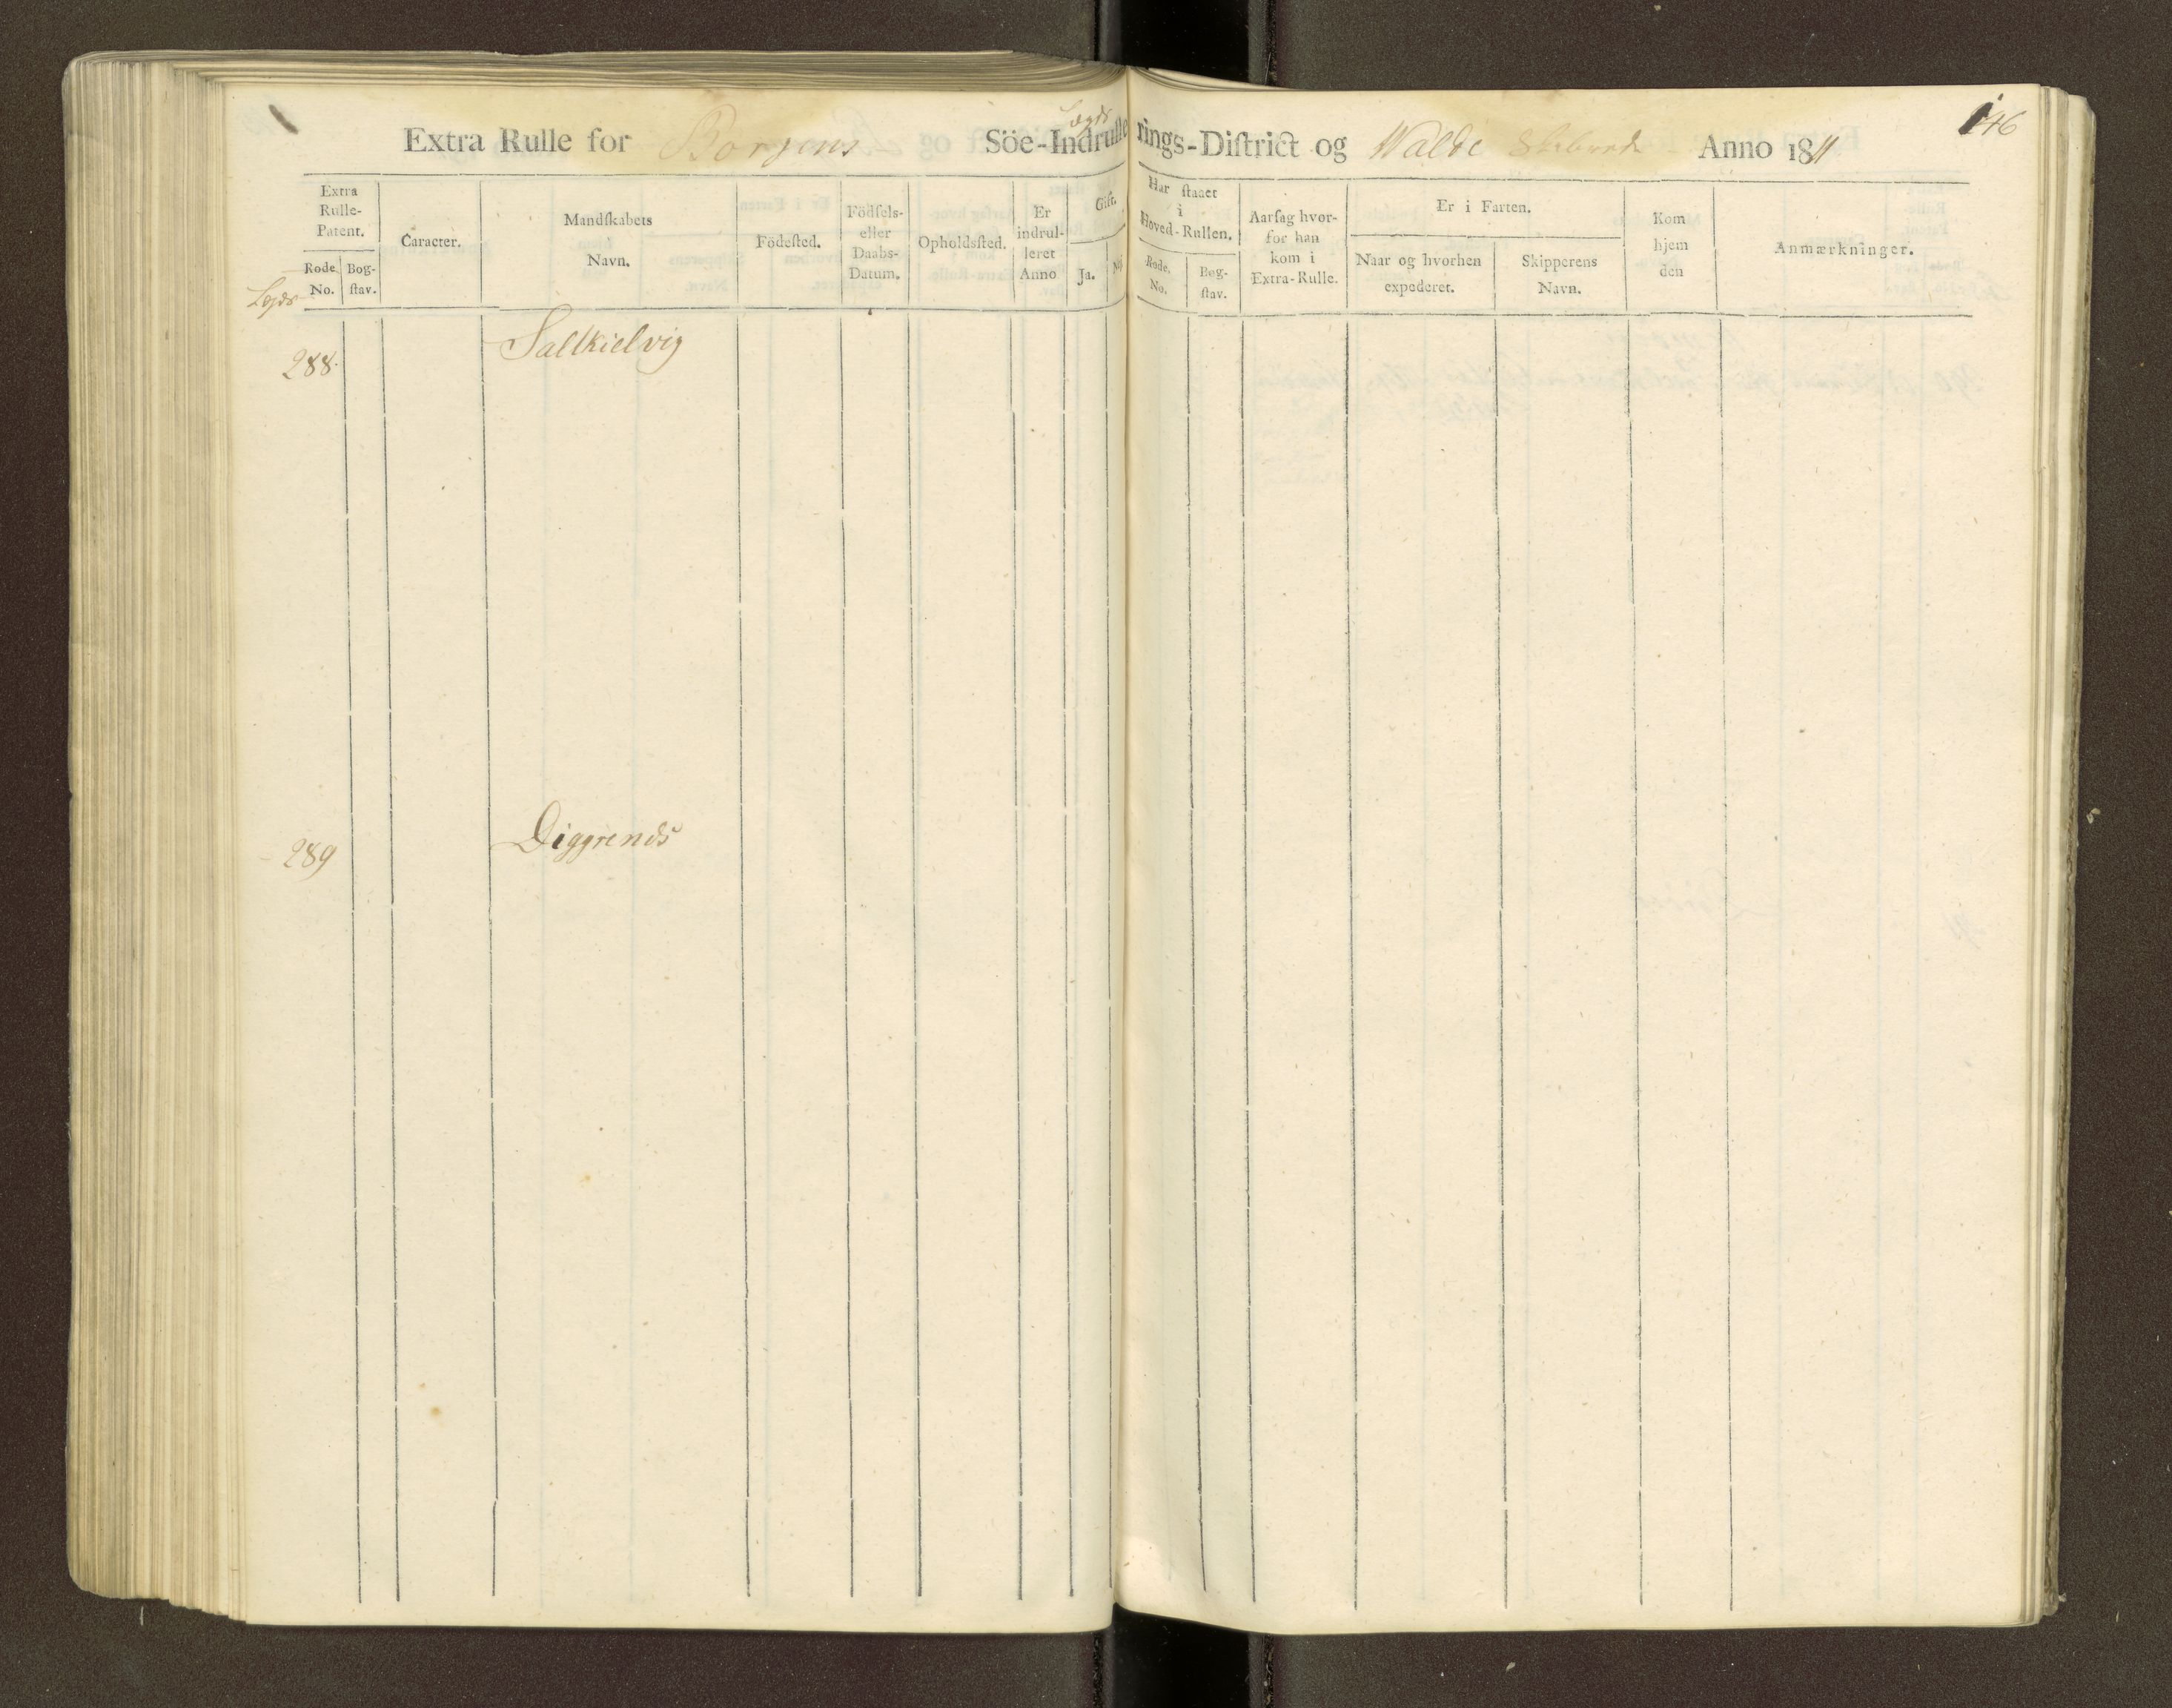 146
Lægds
Extra Rulle for Borgens Söe-Indrullerings-Diſtrict og Walde Skibrede Anno 1811
Extra Rulle-Patent.
Rode No.
Bog-ſtav.
Caracter.
Mandſkabets Navn.
Födeſted.
Födſels- eller Daabs-Datum.
Opholdsſted.
Er indrulleret Anno
Gift.
Ja.
Nej.
Har ſtaaet i Hoved-Rullen.
Rode. No.
Bog-ſtav.
Aarſag hvorfor han kom i Extra-Rulle.
Er i Farten.
Naar og hvorhen expederet.
Skipperens Navn.
Kom hjem den
Anmærkninger.
Lægds
288. Saltkielvig
289 Diggrends